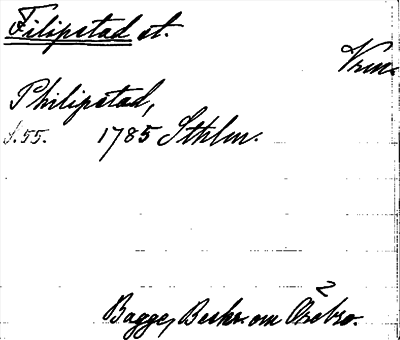 Filipstad st.
Vrml.
Philipstad,
s. 55. 1785 Sthlm.
2
Bagge, Beskr. om Örebro.